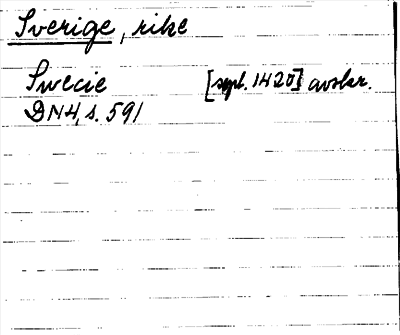 Sverige, rike
Swecie [sept. 1420] avskr.
DN4, s. 591